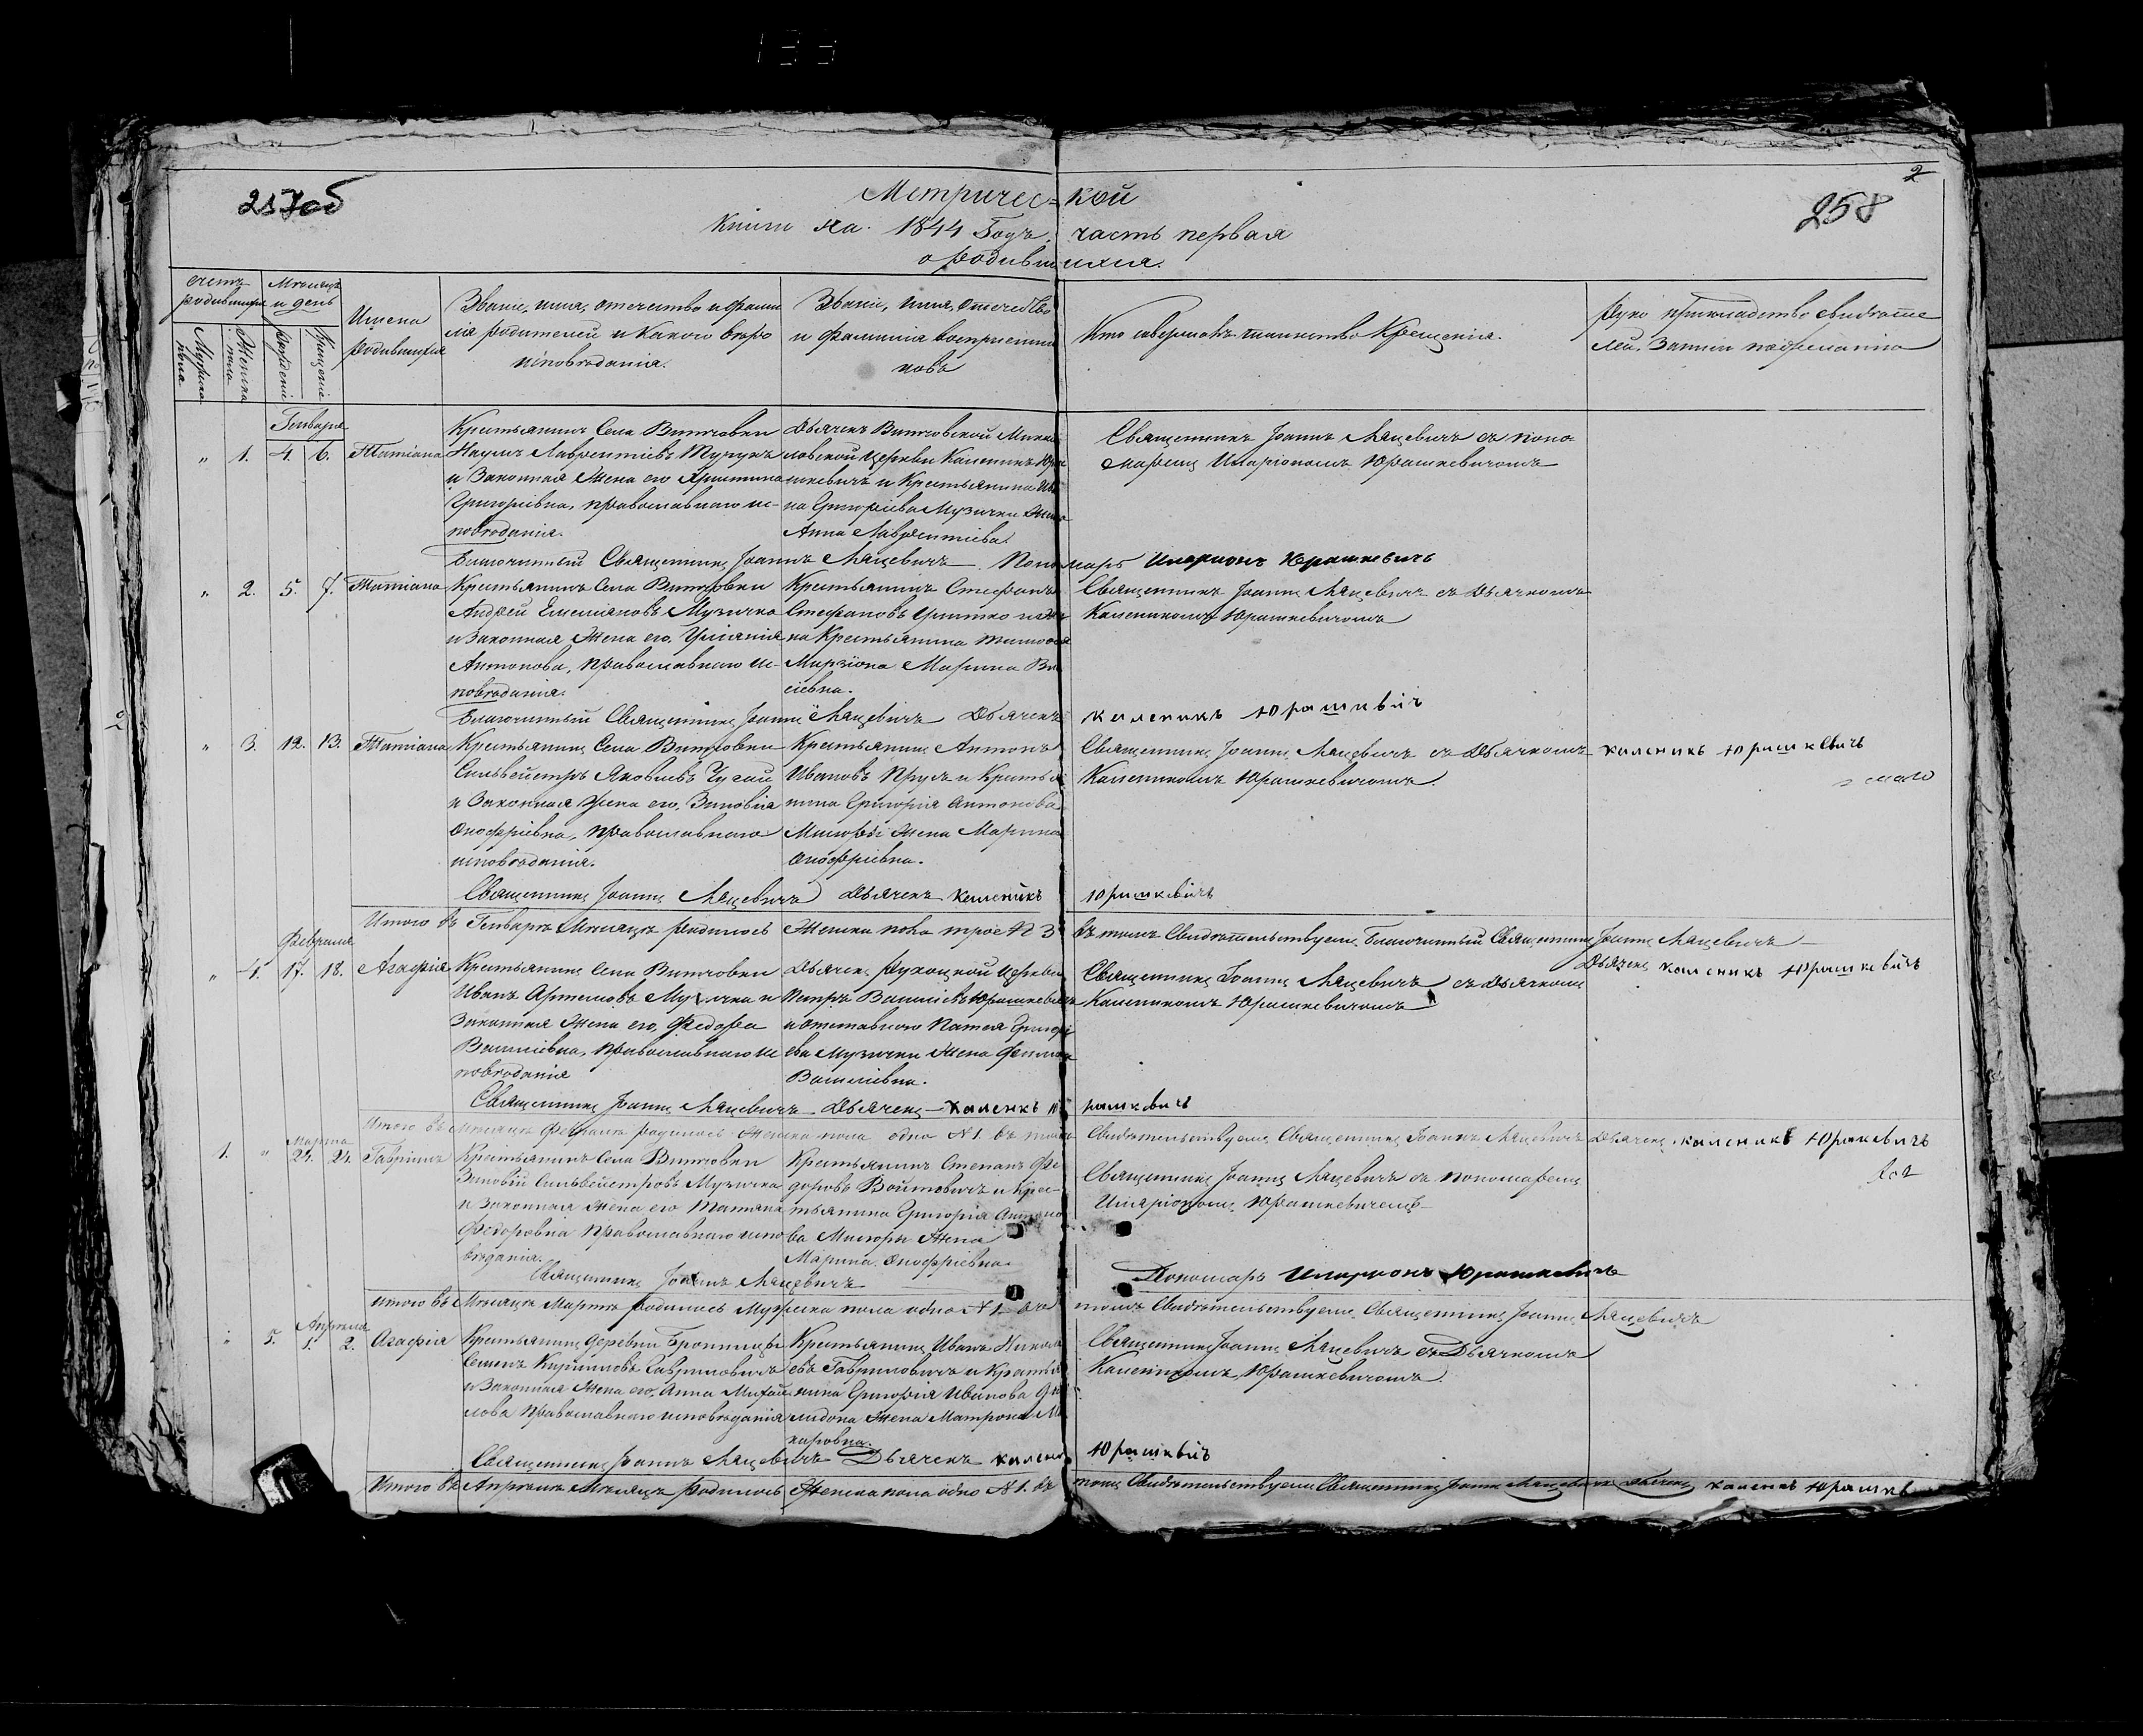 133
257об
2
258
Метричес=кой
Книги на 1844 Годъ, часть первая
о родившихся.
Счетъ родившихся
Мѣсяцъ и день
Мужска пола
Женска пола
Рожденія
Крещенія
Имена родившихся
Званіе, имя, отечество и фами
лія родителей и какого веро
исповѣданія.
Званіе, имя, отечество
и фамилія воспріемни
ковъ
Кто совершалъ таинство Крещенія.
Руко прикладство свидѣте
лей записи
Генваря
" 1. 4. 6. Татіана
Крестьянинъ Села Витковки
Наумъ Лаврентіевъ
и Законная Жена его
Григоріевна, православнаго ис-
повѣданія.
Дьячекъ Витковской
ловской Церкви Каленикъ Юра
шкевичъ и Крестьянина Ива
на Григоріева Музички Жена
Анна Лаврентіева.
Священникъ Іоаннъ Ляцевичъ съ поно-
маремъ Иларіономъ Юрашкевичомъ
Благочинный Священникъ Іоаннъ Ляцевичъ Пономарь Иларионъ Юрашкевичъ
" 2. 5. 7. Татіана
Крестьянинъ Села Витковки
Андрей Емельяновъ Музичка
и Законная Жена его,
Антонова, православнаго ис-
повѣданія.
Крестьянинъ Стефанъ
Стефановъ
на Крестьянина
Марина Ва
сіевна.
Священникъ Іоаннъ Ляцевичъ съ Дьячкомъ
Каленикомъ Юрашкевичомъ
Благочинный Священникъ Іоаннъ Ляцевичъ Дьячекъ каленикъ Юрашквич
" 3. 12. 13. Татіана
Крестьянинъ Села Витковки
Сильвестръ Яковлевъ
и Законная Жена его, Зиновія
Онофріевна, православнаго
исповѣданія.
Крестьянинъ Антонъ
Ивановъ Прусъ и Крестья
нина Григорія Антонова
Жена Марина
Онофріевна.
Священникъ Іоаннъ Ляцевичъ съ Дьячкомъ
Каленикомъ Юрашкевичомъ.
каленикъ Юрашкевичъ
Священникъ Іоаннъ Ляцевичъ Дьячекъ каленикъ Юрашкевичъ
Итого въ Генварѣ Мѣсяцѣ родилось Женска пола трое № 3 въ томъ Свидѣтельствуемъ Благочинный Священникъ Іоаннъ Ляцевичъ
Дьячекъ каленикъ Юрашкевичъ
Февраля
" 4. 17. 18. Агафія
Крестьянинъ Села Витковки
Иванъ Артемовъ Музичка и
Законная Жена его, Федора
Василіевна, православнаго ис
повѣданія
Дьячекъ Церкви
Петръ Василіевъ Юрашкевичъ
и отставного Григорі
ева Музички Жена
Василіевна.
Священникъ Іоаннъ Ляцевичъ съ Дьячкомъ
Каленикомъ Юрашкевичомъ
Священникъ Іоаннъ Ляцевичъ Дьячекъ каленикъ Юрашкевичъ
Итого въ Мѣсяцѣ Февралѣ родилось Женска пола одно № 1. въ томъ Свидѣтельствуемъ Священникъ Іоаннъ Ляцевичъ Дьячекъ каленикъ Юрашкевичъ
Марта
1. " 24. 24. Гавріилъ
Крестьянинъ Села Витковки
Зиновій Сильвестровъ Музичка
и Законная Жена его Татіана
Федоровна православнаго испо
вѣданія.
Крестьянинъ Степанъ Фе
доровъ Войтовичъ и Крес-
тьянина Григорія Антоно
ва Жена
Марина Онофріевна.
Священникъ Іоаннъ Ляцевичъ съ пономаремъ
Иларіономъ Юрашкевичемъ
Священникъ Іоаннъ Ляцевичъ Пономарь Иларионъ Юрашкевичъ
Итого въ Мѣсяцѣ Мартѣ родилось Мужска пола одно № 1. въ томъ Свидѣтельствуемъ Священникъ Іоаннъ Ляцевичъ
Апреля
" 5. 1. 2. Агафія
Крестьянинъ деревни Бронницы
Семенъ Кириловъ Гавриловичъ
и Законная Жена его, Анна Михай
лова православнаго исповѣданія
Крестьянинъ Иванъ Никола
евъ Гавриловичъ и Крестья
нина Григорія Иванова
Жена Матрона Ма
каровна.
Священникъ Іоаннъ Ляцевичъ съ Дьячкомъ
Калеником Юрашкевичомъ
Священникъ Іоаннъ Ляцевичъ Дьячекъ калени Юрашквичъ
Итого въ Апрелѣ Мѣсяцѣ родилось Женска пола одно № 1. въ томъ Свидѣтельствуемъ Священникъ Іоаннъ Ляцевичъ Дьячекъ каленикъ Юрашкв